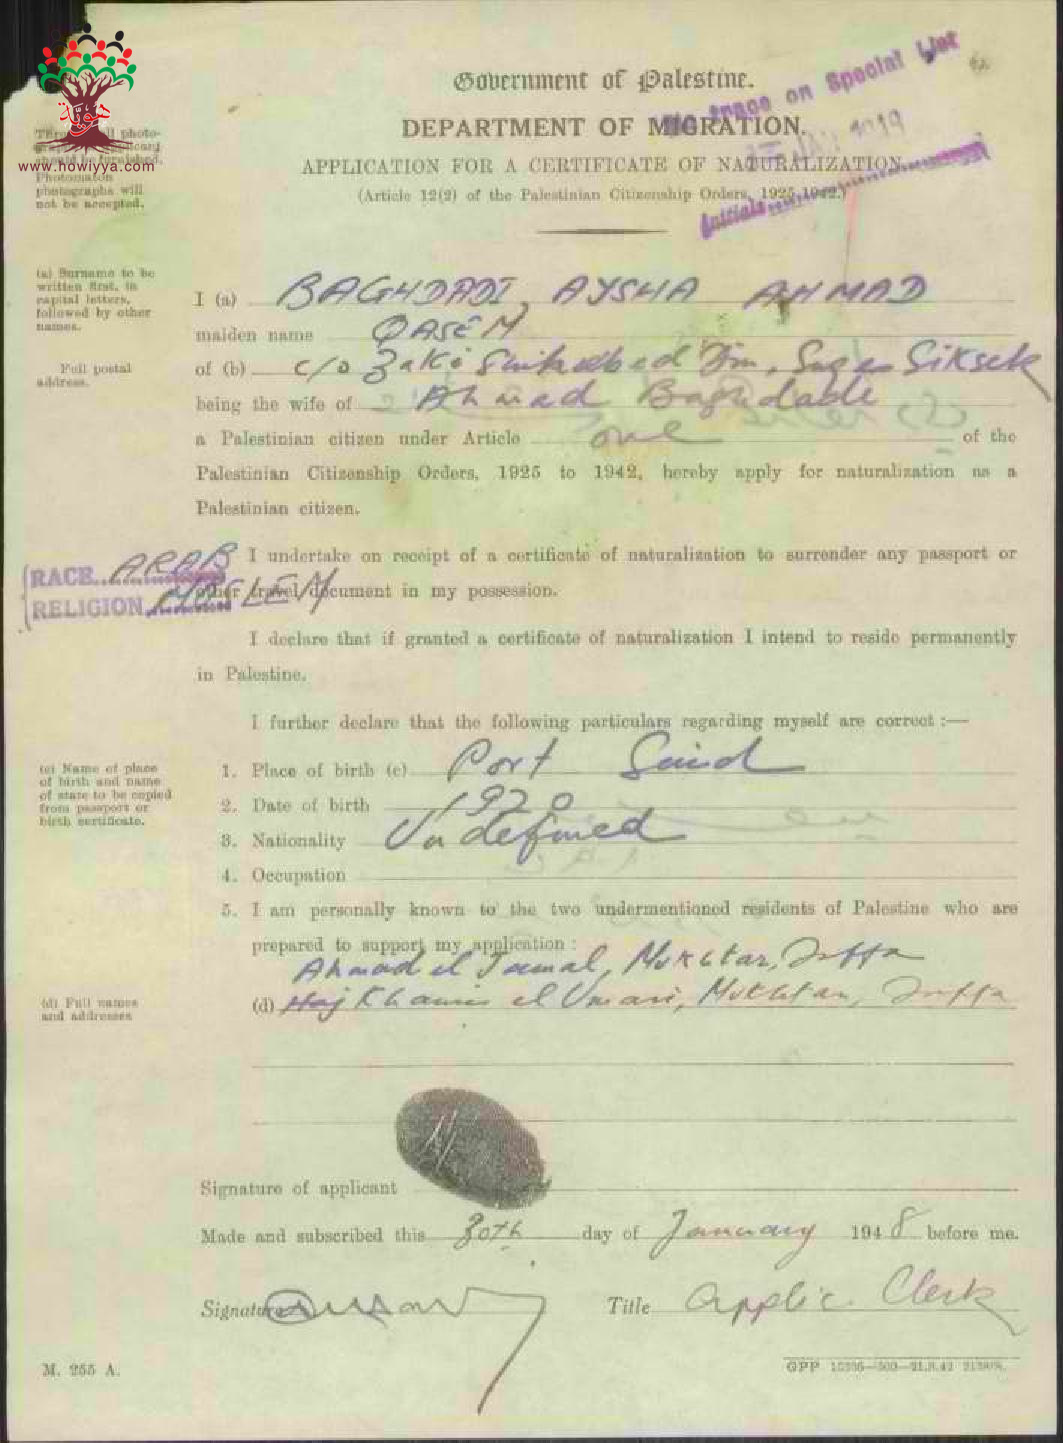 Government of Palestine.
on Special List
DEPARTMENT OF MIGRATION.
APPLICATION FOR A CERTIFICATE OF NATURALIZATION
(Article 12(2) of the Palestinian Citizenship Orders, 1925-1942.)
Initials
هوية
www.howiyya.com
photographs will
not be accepted.
(a) Surname to be
written first, in
capital letters,
followed by other
names.
I (a) BAGHDADI, AYSHA AHMAD
maiden name QASEM
Full postal
address.
of (b) c/o Zaki Siksek
being the wife of Ahmad Baghdade
a Palestinian citizen under Article one of the
Palestinian Citizenship Orders, 1925 to 1942, hereby apply for naturalization as a
Palestinian citizen.
I undertake on receipt of a certificate of naturalization to surrender any passport or
other travel document in my possession.
RACE ARAB
RELIGION MOSLEM
I declare that if granted a certificate of naturalization I intend to reside permanently
in Palestine.
I further declare that the following particulars regarding myself are correct :—
(c) Name of place
of birth and name
of state to be copied
from passport or
birth certificate.
1. Place of birth (c) Port Said
2. Date of birth 1920
3. Nationality Undefined
4. Occupation
5. I am personally known to the two undermentioned residents of Palestine who are
prepared to support my application :
Ahmad el Jamal, Mukhtar, Jaffa
(d) Full names
and addresses
(d) Haj Khamis el Umari, Mukhtar, Jaffa
Signature of applicant
Made and subscribed this 30th day of January 1948 before me.
Signature Title Applic. Clerk
M. 255 A.
GPP